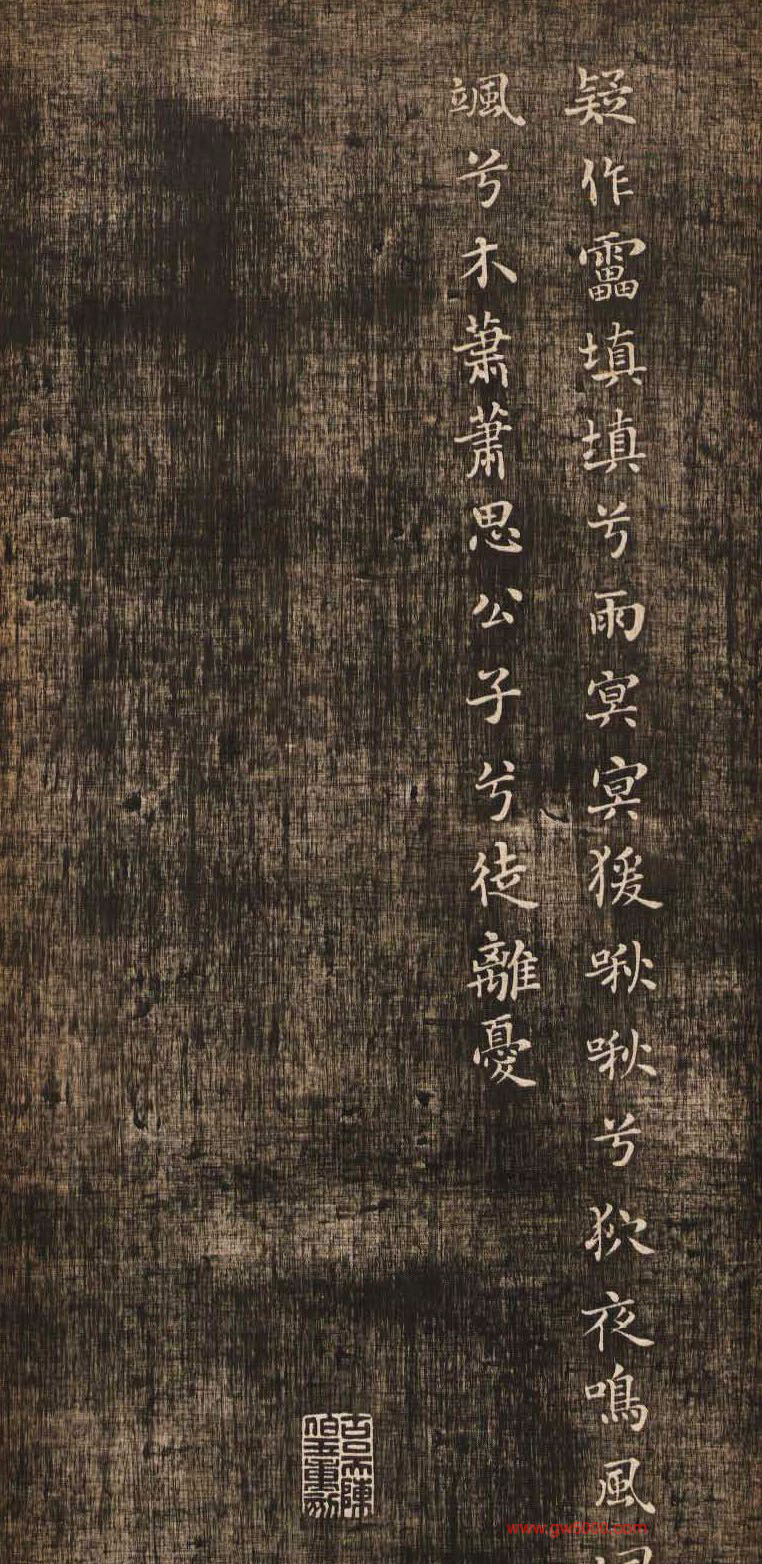 疑作靁填填兮雨冥冥猨啾啾兮狖夜鳴風
颯兮木蕭蕭思公子兮徒離憂
www.gw5000.com